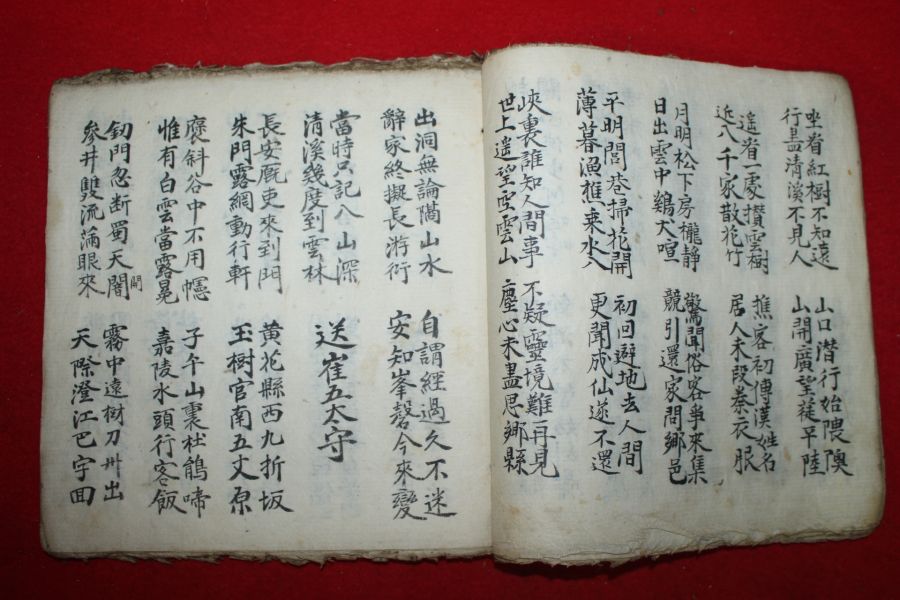 坐看紅樹不知遠
行盡清溪不見人
山口潜行始隈隩
山開廣望旋平陸
遙看一處攢雲樹
近入千家散花竹
樵客初傳漢姓名
居人未改秦衣服
月明松下房櫳静
日出雲中鷄犬喧
驚聞俗客爭來集
競引還家問鄉邑
平明閭巷掃花開
薄暮漁樵乗水入
初回避地去人間
更聞成仙遂不還
峽裏誰知人間事
世上遙望空雲山
不疑靈境難再見
塵心未盡思鄉縣
出洞無論隔山水
辭家終擬長游衍
自謂經過久不迷
安知峯磬今來變
當時只記入山深
清溪幾度到雲林
送崔五太守
長安厩吏來到門
朱門露網動行軒
黄花縣西九折坂
玉樹宮南五丈原
褒斜谷中不用幰
惟有白雲當露冕
子午山裏杜鵑啼
嘉陵水頭行客飯
釼門忽断蜀天闇
開
參井雙流滿眼來
霧中遠樹刀州出
天際澄江巴字回